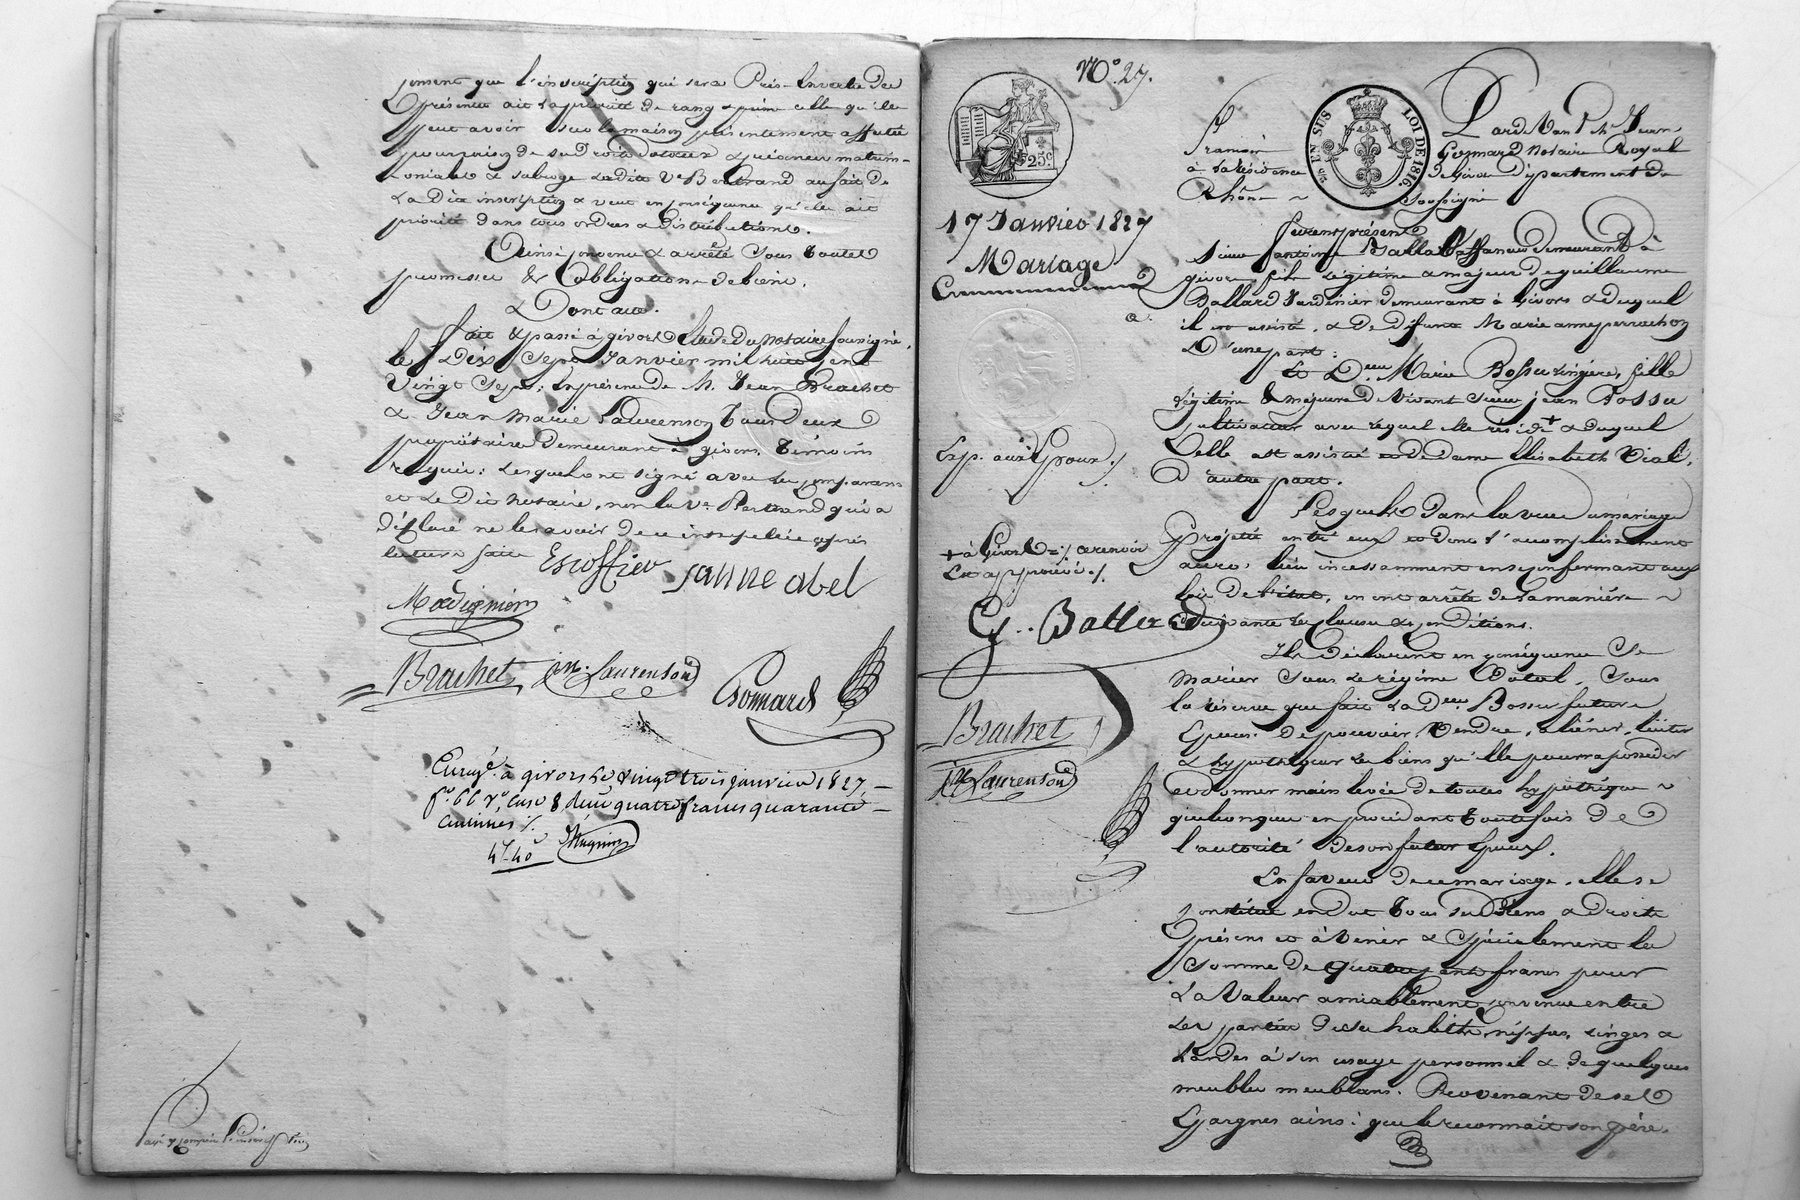 consent que l'inscription qui sera Prise en vertu des
présentes ait la priorité de rang & prime celle qu'elle
peut avoir sur la maison présentement affectée
pour raison de ses droits dotaux & gains matrim-
oniaux & subroge ladite Ve Bertrand au fait de
La dite inscription & veut en conséquence qu'elle ait
priorité dans tous ordres & distributions.
Ainsi convenu & arrêté sous toutes
promesses & Obligations de biens.
& Dont acte.
fait & passé à givors Etude du Notaire soussigné,
le Dix Sept Janvier mil huit cent
Vingt Sept; en présence de M. Jean Brachet
& Jean Marie Laurenson tous deux
propriétaires demeurant à givors, témoins
requis; lesquels ont signé avec les comparans
et le Dit Notaire, non la Ve Bertrand qui a
déclaré ne le savoir de ce interpellée après
lecture faite
Escoffier janne abel
Brachet jm. Laurenson
Gonnard
Enregé à givors le vingt trois janvier 1827,
fo 66 Vo, Case 8 Reçu quatre francs quarante
centimes
4f-40
No. 27.
25c
EN SUS
LOI DE 1816.
Par devant Me Jean
François Gonnard Notaire Royal
à la résidence de Givors Département du
Rhône soussigné
17 Janvier 1827
Mariage
furent présens
Sieur Antoine Ballard demeurant à
givors fils légitime & majeur de guillaume
Ballard Jardinier demeurant à Givors & duquel
il est assisté, & de défunte Marie anne perrachon
D'une part;
Et Dlle Marie Bossu lingère, fille
légitime & majeure de Vivant Sieur jean Bossu
cultivateur avec lequel elle réside + & duquel
Elle est assistée et de dame Elisabeth Vial,
D'autre part.
Exp. aux Epoux
Lesquels dans la vue du mariage
projeté entre eux et dont l'accomplissement
aura lieu incessamment en se conformant aux
lois de l'état, en ont arrêté de la manière
suivante les clauses & conditions.
+ à Givors
Est approuvé
G. Ballard
Ils Déclarent en conséquence Se
marier Sous le régime Dotal, Sous
la réserve que fait la Dlle Bossu future
Epouse De pouvoir Vendre, aliéner, traiter
& hypothéquer les biens qu'elle pourra posséder
& donner main levée de toutes hypothèques
quelconques en procédant toutefois de
l'autorité de son futur Epoux.
Brachet
jm Laurenson
En faveur de ce mariage, elle se
constitue en Dot tous ses Biens & droits
présens et à Venir & Spécialement la
Somme De quatre cents francs pour
La Valeur amiablement convenue entre
Les parties de ses habits, nippes, linges &
hardes à son usage personnel & de quelques
meubles meublans. Provenant de ses
Epargnes ainsi que le reconnait son père.